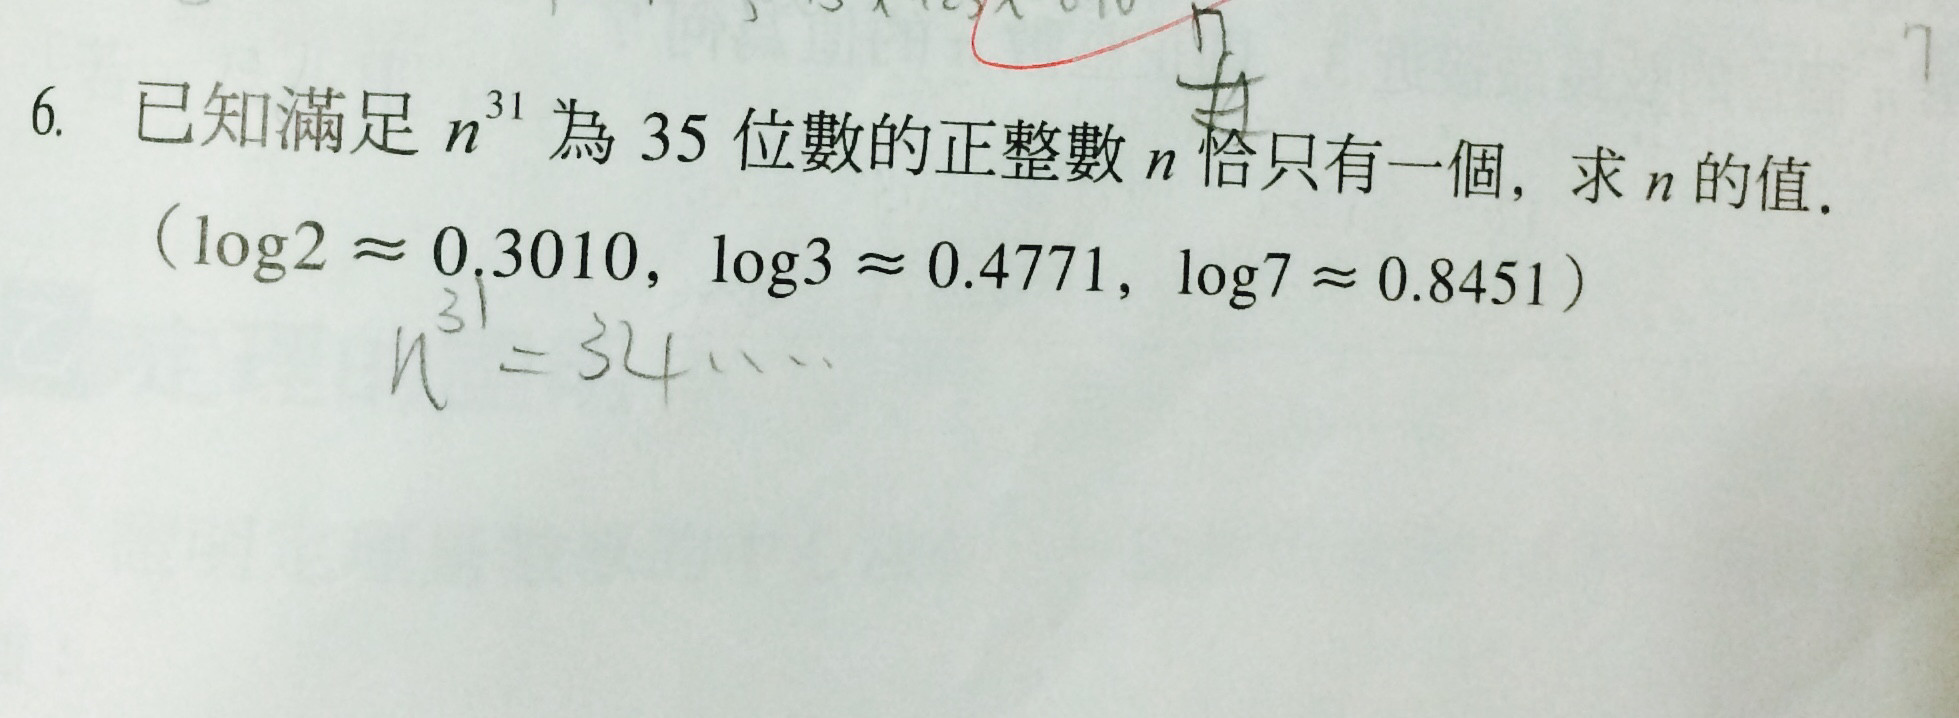 6. 已知滿足 n³¹ 為 35 位數的正整數 n 恰只有一個，求 n 的值.
（log2 ≈ 0.3010，log3 ≈ 0.4771，log7 ≈ 0.8451）
n³¹ = 34.....